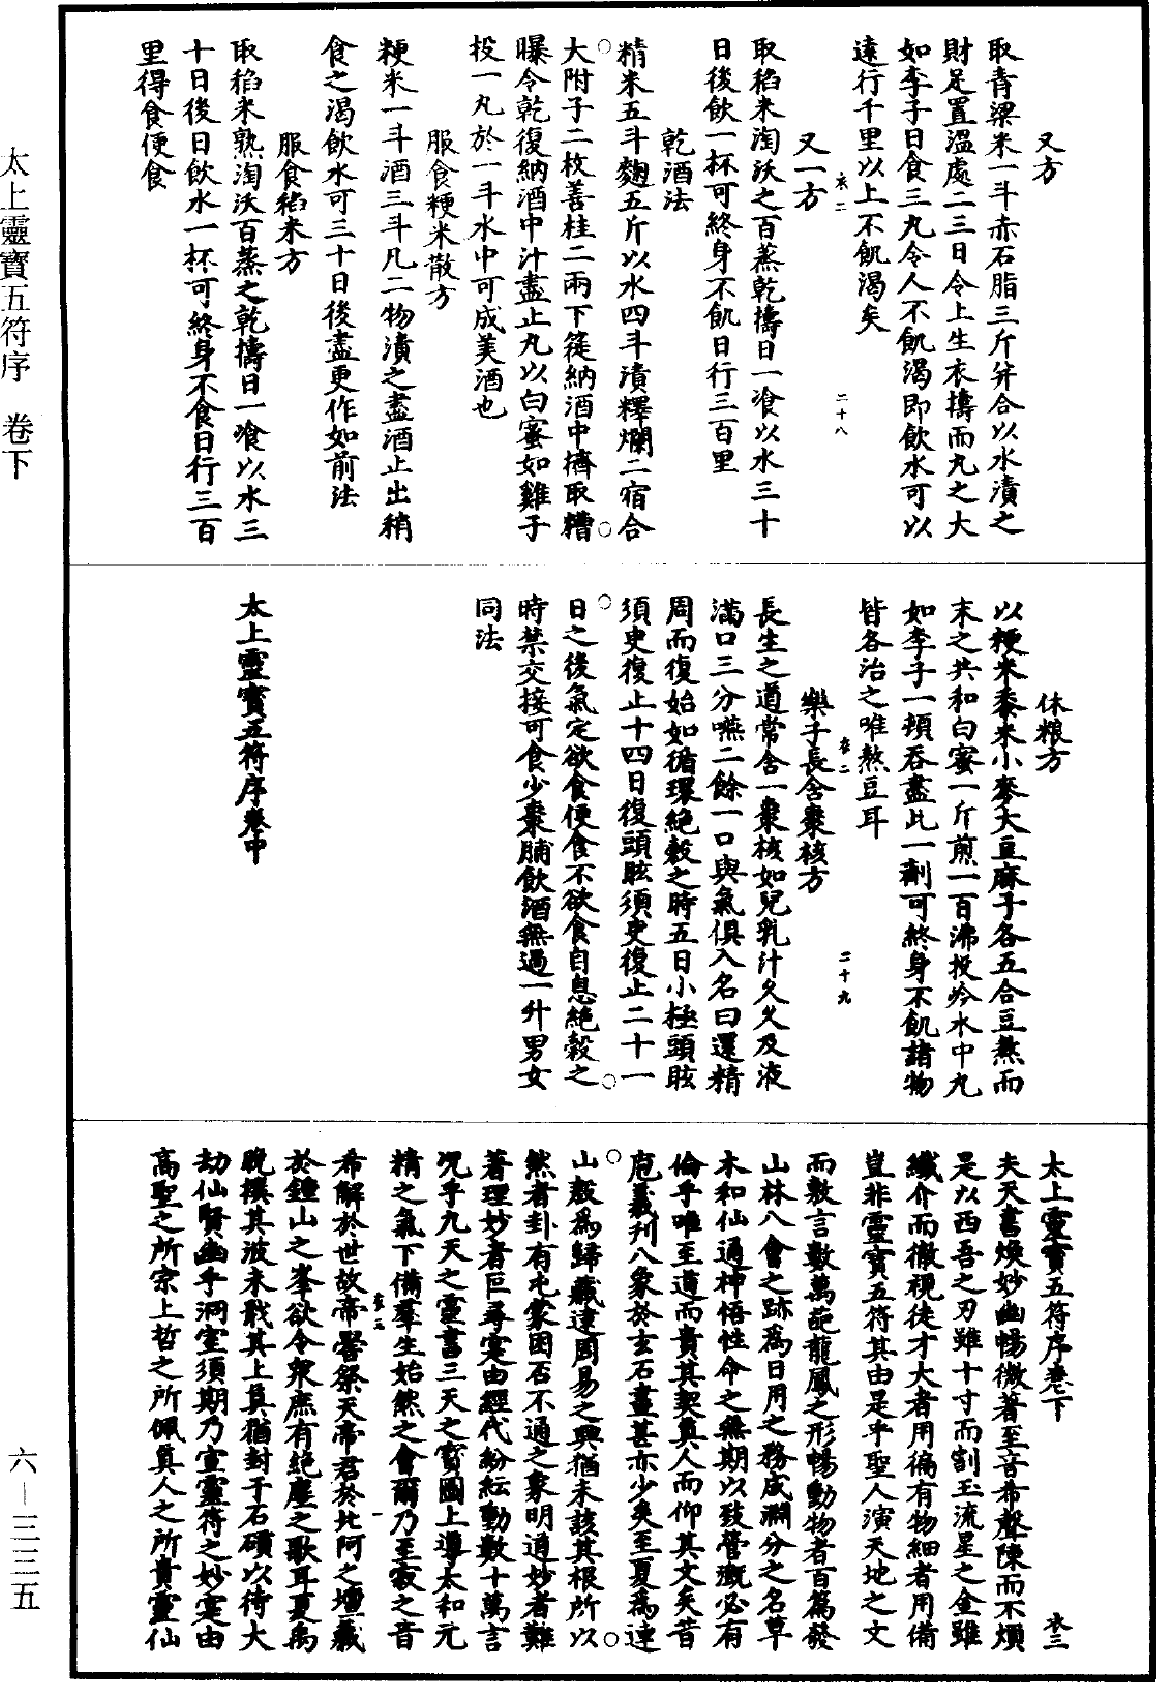 又方
取青粱米一斗赤石脂三斤弁合以水漬之
財足置溫處二三日令上生衣擣而丸之大
如李子日食三丸令人不飢渴即飲水可以
遠行千里以上不飢渴矣
衣二
二十八
又一方
取稻米淘沃之百蒸乾擣日一飡以水三十
日後飲一杯可終身不飢日行三百里
乾酒法
精米五斗麴五斤以水四斗漬釋爛二宿合
大附子二枚善桂二兩下簁納酒中擠取糟
曝令乾復納酒中汁盡止丸以白蜜如雞子
投一丸於一斗水中可成美酒也
服食粳米散方
粳米一斗酒三斗凡二物漬之盡酒止出稍
食之渴飲水可三十日後盡更作如前法
服食稻米方
取稻米熟淘沃百蒸之乾擣日一飡以水三
十日後日飲水一杯可終身不食日行三百
里得食便食
休粮方
以粳米黍米小麥大豆麻子各五合豆熬而
末之共和白蜜一斤煎一百沸投冷水中丸
如李子一頓吞盡此一劑可終身不飢諸物
皆各治之唯熬豆耳
衣二
二十九
樂子長含棗核方
長生之道常含一棗核如兒乳汁久久及液
滿口三分嚥二餘一口與氣俱入名曰還精
周而復始如循環絕穀之時五日小極頭眩
須臾復止十四日復頭眩須臾復止二十一
日之後氣定欲食便食不欲食自息絕穀之
時禁交接可食少棗脯飲酒無過一升男女
同法
太上靈寶五符序卷中
太上靈寶五符序卷下
衣三
夫天書煥妙幽暢微著至音希聲陳而不煩
是以西吾之刃雖十寸而割玉流星之金雖
纖介而徹視徒才大者用徧有物細者用備
豈非靈寶五符其由是乎聖人演天地之文
而敷言數萬葩龍鳳之形暢動物者百篇發
山林八會之跡為日用之務成淵分之名草
木和仙通神悟性命之無期以致管溉必有
倫乎唯至道而貴其契真人而仰其文矣昔
庖羲列八象於玄石畫甚亦少矣至夏為連
山殷為歸藏逮周易之興猶未該其根所以
然者卦有屯蒙困否不通之象明道妙者難
著理妙者巨尋寔由經代紛紜動數十萬言
况乎九天之靈書三天之寶圖上導太和元
精之氣下備羣生始然之會爾乃至寂之音
衣三
一
希解於世故帝嚳祭天帝君於北阿之壇藏
於鍾山之峯欲令衆庶有絕塵之歌耳夏禹
晚撰其波末戢其上真猶封于石磧以待大
劫仙賢幽乎洞室須期乃宣靈符之妙寔由
高聖之所宗上哲之所佩真人之所貴靈仙
太上靈寶五符序　卷下
六—三三五